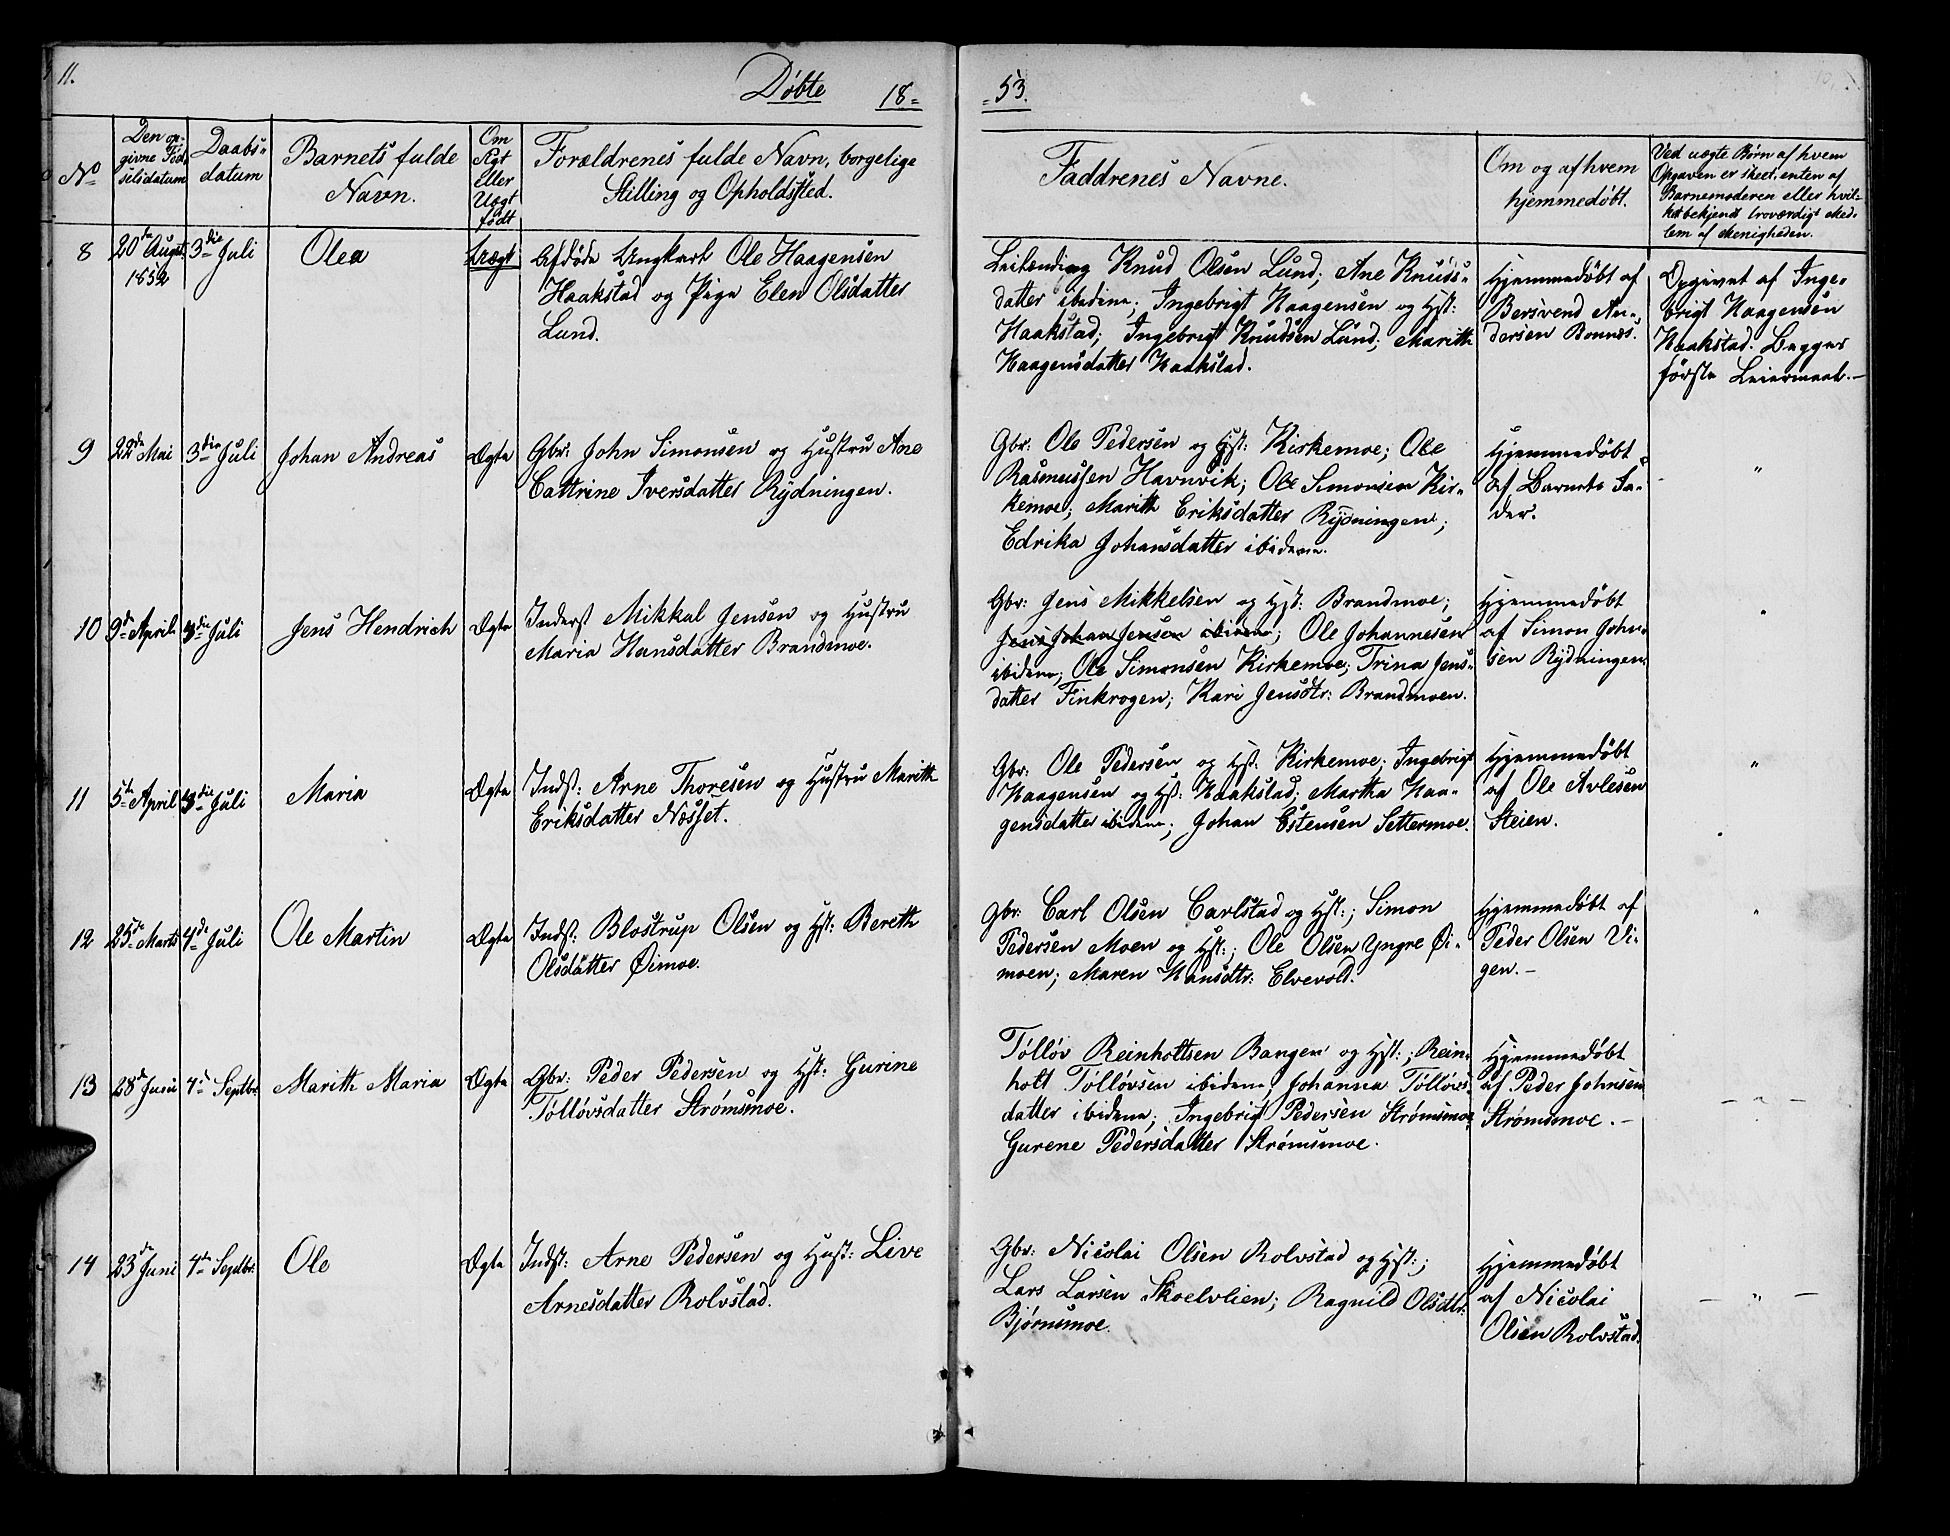 11.
Døbte 18=
=53.
No
Den op-
givne Fød-
selsdatum
Daabs-
datum
Barnets fulde
Navn.
Om
Ægt
eller
Uægt
født
Forældrenes fulde Navn, borgelige
Stilling og Opholdsted.
Faddrenes Navne.
Om og af hvem
hjemmedøbt.
Ved uægte Børn af hvem
Opgaven er skeet, enten af
Barnemoderen eller hvil-
ket bekjendt troværdigt Med-
lem af Menigheden.
8
20de Augst
1852
3die Juli
Olea
Uægt
Afdøde Ungkarl Ole Haagensen
Haakstad og Pige Elen Olsdatter
Lund.
Leilending Knud Olsen Lund; Ane Knuds-
datter ibidem; Ingebrigt Haagensen og Hst:
Haakstad; Ingebrigt Knudsen Lund; Marith
Haagensdatter Haakstad.
Hjemmedøbt af
Bersvend An-
dersen Bonnes.
Opgivet af Inge-
brigt Haagensen
Haakstad. Begges
første Leiermaal.-
9
22de Mai
3die Juli
Johan Andreas
Ægte
Gbr: John Simonsen og Hustru Ane
Cattrine Iversdatter Rydningen.
Gbr: Ole Pedersen og Hst: Kirkemoe; Ole
Rasmussen Havnvik; Ole Simonsen Kir-
kemoe; Marith Eriksdatter Rydningen;
Edrika Johansdatter ibidem.
Hjemmedøbt
af Barnets Fa-
der.
"
10
9de April
3die Juli
Jens Hendrich
Ægte
Inderst Mikkal Jensen og Hustru
Maria Hansdatter Brandmoe.
Gbr: Jens Mikkelsen og Hst: Brandmoe;
Jens Johan Jensen ibidem; Ole Johannesen
ibidem; Ole Simonsen Kirkemoe; Trina Jens-
datter Finkrogen; Kari Jensdtr: Brandmoen.
Hjemmedøbt
af Simon John-
sen Rydningen.
"
11
5te April
3die Juli
Maria
Ægte
Indst: Arne Thoresen og Hustru Marith
Eriksdatter Nosset.
Gbr: Ole Pedersen og Hst: Kirkemoe; Ingebrigt
Haagensen og Hst: Haakstad; Martha Haa-
gensdatter ibidem; Johan Estensen Settermoe.
Hjemmedøbt
af Ole Avlesen
Steien.
"
12
25de Marts
4de Juli
Ole Martin
Ægte
Indst: Blostrup Olsen og Hst: Bereth
Olsdatter Øimoe.
Gbr: Carl Olsen Carlstad og Hst:; Simon
Pedersen Moen og Hst:; Ole Olsen Yngre Øi-
moen; Maren Hansdtr: Elvevold.
Hjemmedøbt af
Peder Olsen Vi-
gen.-
"
13
28d Juni
4d Septbr.
Marith Maria
Ægte
Gbr: Peder Pedersen og Hst: Gurine
Tølløvsdatter Strømsmoe.
Tølløv Reinholtsen Bangen og Hst:; Rein-
holt Tølløvsen ibidem, Johanna Tølløvs-
datter ibidem; Ingebrigt Pedersen Strømsmoe,
Gurene Pedersdatter Strømsmoe.
Hjemmedøbt
af Peder Johnsen
Strømsmoe.-
- " -
14
23de Juni
4de Septbr.
Ole
Ægte
Indst: Arne Pedersen og Hust: Live
Arnesdatter Rolvstad.
Gbr: Nicolai Olsen Rolvstad og Hst:;
Lars Larsen Skoelvlien; Ragnild Olsdtr.
Bjørnsmoe.
Hjemmedøbt
af Nicolai
Olsen Rolvstad.
- " -